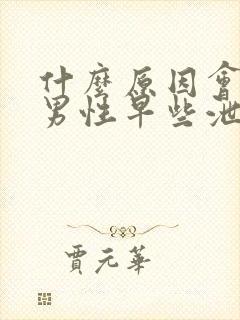 什麼原因會
男性早些泄
賈元華